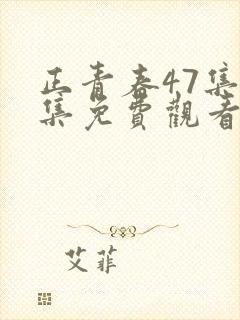 正青春47集
集免費觀看
艾菲